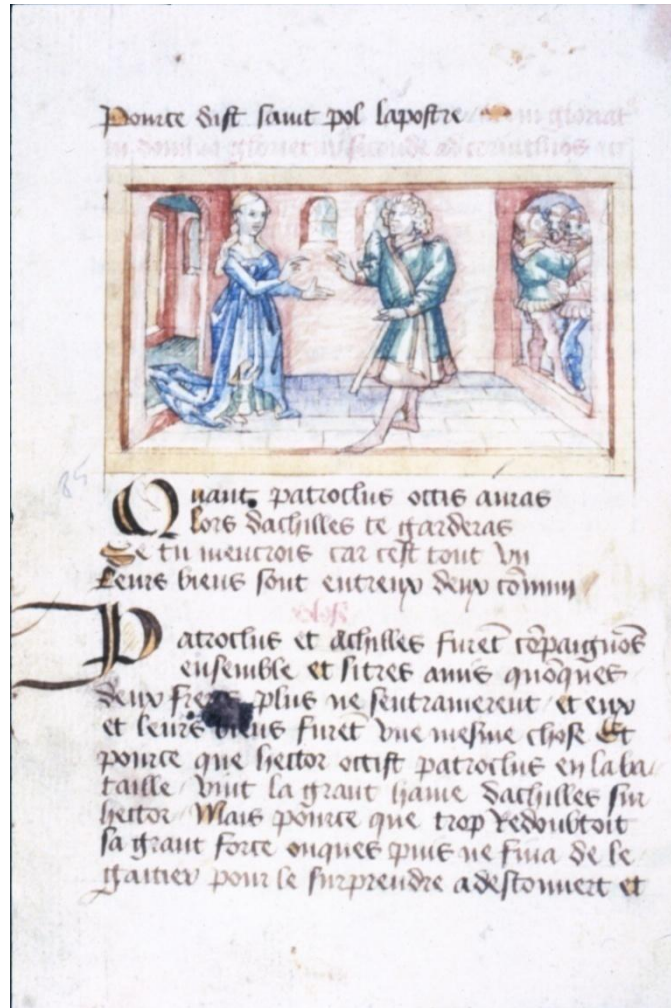 Pource dist saint pol lapostre
Quant patroclus occis auras
lors dachilles te garderas
Se tu mencrois car cest tout vn
Leurs biens sont entreux deux cōmun
Patroclus et Achilles furēt cōpaignōs
ensemble et sitres amis quōques
deux freres plus ne sentramerent et eux
et leurs biens furēt vne mesme chose Et
pource que hector occist patroclus en la ba
taille vint la grant haine dachilles sur
hector Mais pource que trop Redoubtoit
sa grant force onques puis ne fina de le
gaitier pour le surprendre a descouuert et